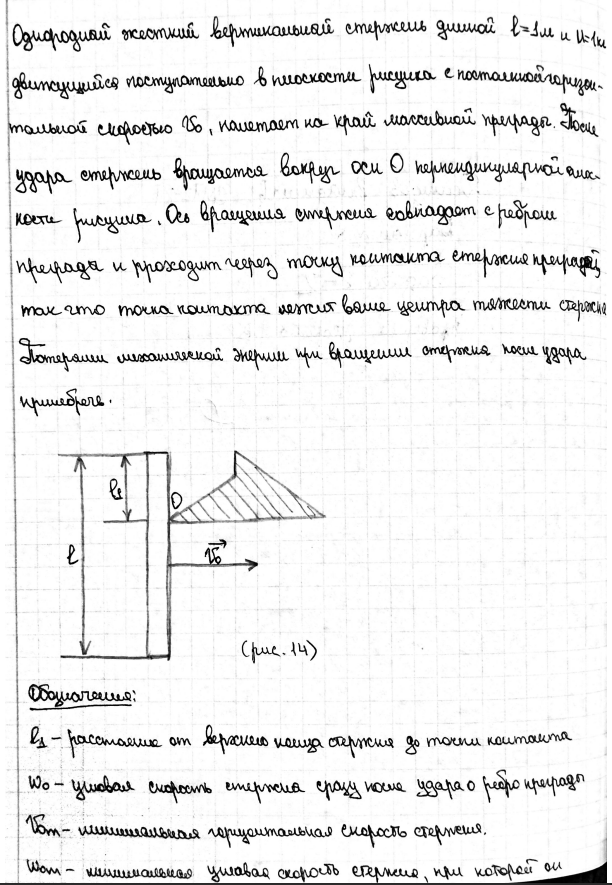 Однородный жесткий вертикальный стержень длиной l=1м и M=1кг
движущийся поступательно в плоскости рисунка с постоянной горизон-
тальной скоростью V₀, налетает на край массивной преграды. После
удара стержень вращается вокруг оси О перпендикулярной плос-
кости рисунка. Ось вращения стержня совпадает с ребром
преграды и проходит через точку контакта стержня преградой,
так что точка контакта лежит выше центра тяжести стержня
Потерями механической энергии при вращении стержня после удара
пренебречь.
l₁
O
l
V₀
(рис. 14)
Обозначения:
l₁ – расстояние от верхнего конца стержня до точки контакта
ω₀ – угловая скорость стержня сразу после удара о ребро преграды
V₀m – минимальная горизонтальная скорость стержня.
ω₀m – минимальная угловая скорость стержня, при которой он